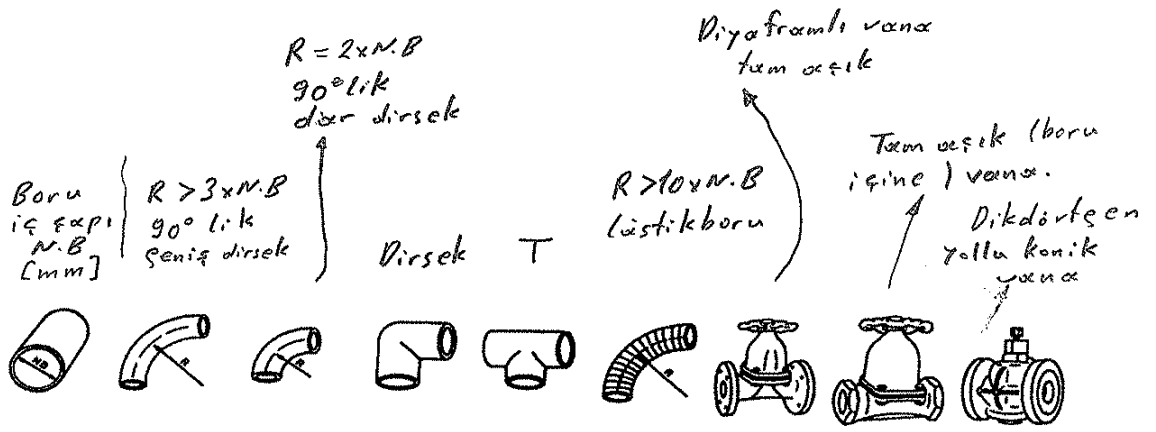 Boru
iç çapı
N.B
[mm]
R > 3xN.B
90° lik
geniş dirsek
R = 2xN.B
90° lik
dar dirsek
Dirsek
T
R > 10xN.B
lastikboru
Diyaframlı vana
tam açık
Tam açık (boru
içine ) vana.
Dikdörtgen
yollu konik
vana
NB
R
R
R